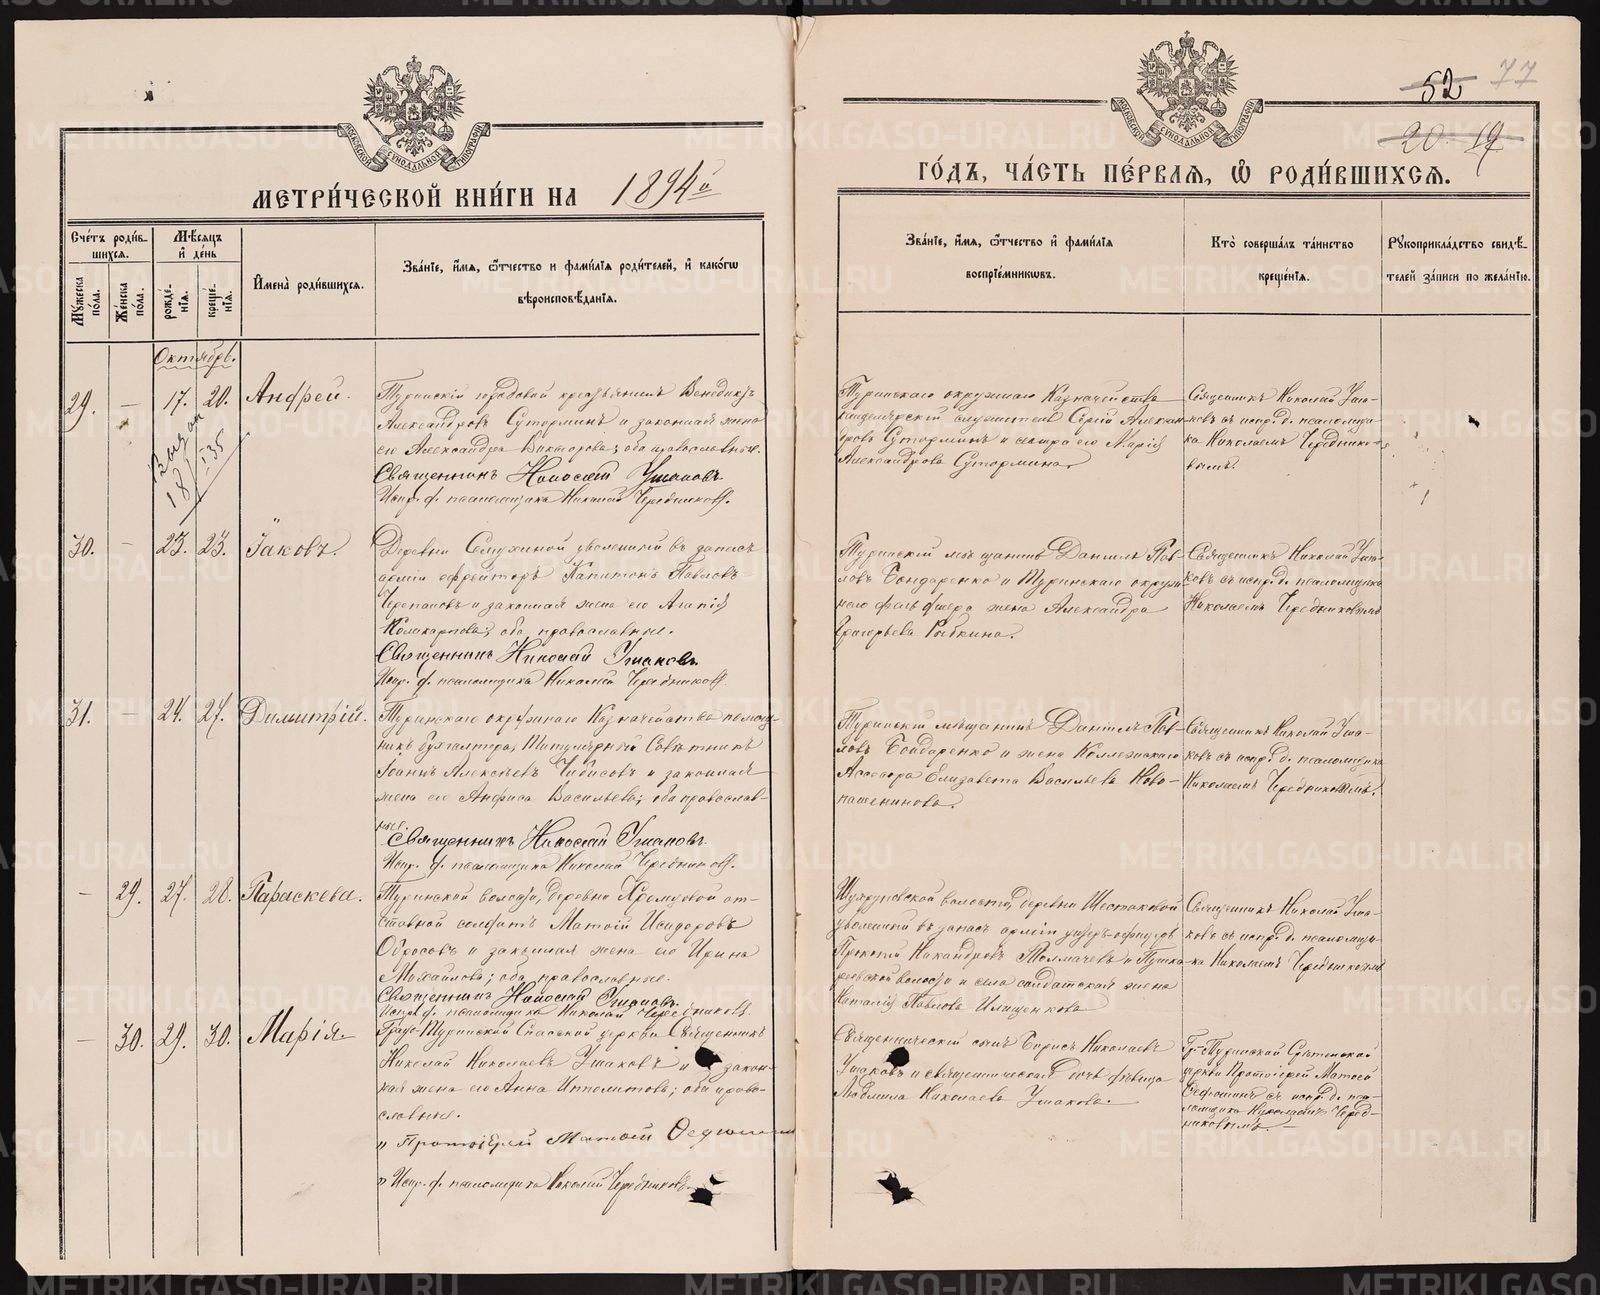 МЕТРИ́ЧЕСКОЙ КНИ́ГИ НА 1894й
ГО́ДЪ, ЧА́СТЬ ПЕ́РВАЯ, Ѡ РОДИ́ВШИХСЯ.
52 77
20. 19
МОСКОВСКОЙ СѴНОДАЛЬНОЙ ТИПОГРАФІИ
МОСКОВСКОЙ СѴНОДАЛЬНОЙ ТИПОГРАФІИ
Сче́тъ роди́в-
шихся.
Мѣ́сяцъ
и́ де́нь
Му́жеска по́ла.
Же́нска по́ла.
рожде́-
нїя.
креще́-
нїя.
И҆мена̀ роди́вшихся.
Зва́нїе, и҆́мя, ѻ҆́тчество и фами́лїя роди́телей, и҆ како́гѡ
вѣроисповѣ́данїя.
Зва́нїе, и҆́мя, ѻ҆́тчество и҆ фами́лїя
воспрїе́мникѡвъ.
Кто̀ соверша́лъ та́инство
креще́нїя.
Рꙋкоприкла́дство свидѣ́-
телей за́писи по жела́нїю.
Октябрь.
29. — 17. 20. Андрей.
Александровъ Сутормин и законная жена
его Александра Викторова, оба православные.
Священникъ Николай Ушаковъ.
Испр. д. псаломщика Николай Чередниковъ.
Туринскаго окружнаго Казначейства
Александрова Сутормина.
Священникъ Николай Уша-
ковъ съ испр. д. псаломщи-
ка Николаемъ Чередника-
вымъ.
30. — 23. 23. Іаковъ.
уволенный въ запасъ
арміи ефрейторъ Капитонъ Павловъ
Черепановъ и законная жена его Агапія
Поликарпова, оба православные.
Священникъ Николай Ушаковъ.
Испр. д. псаломщика Николай Чередниковъ.
Туринскій мѣщанинъ Даніилъ Пав-
ловъ Бондаренко и Туринскаго окруж-
наго фельдшера жена Александра
Григорьева Рыбкина.
Священникъ Николай Уша-
ковъ съ испр. д. псаломщика
Николаемъ Чередниковымъ
31. — 24. 27. Димитрій.
Туринскаго окружнаго Казначейства помощ-
никъ бухгалтера, Титулярный Совѣтникъ
Іоаннъ Алексѣевъ Чибисовъ и законная
жена его Анфиса Васильева; оба православ-
ные.
Священникъ Николай Ушаковъ.
Испр. д. псаломщика Николай Чередниковъ.
Туринскій мѣщанинъ Даніилъ Пав-
ловъ Бондаренко и жена Коллежскаго
Асессора Елизавета Васильева Ново-
пашенинова.
Священникъ Николай Уша-
ковъ съ испр. д. псаломщика
Николаемъ Чередниковымъ.
— 29. 27. 28. Параскева.
Туринской волости, деревни от-
ставной солдатъ Матѳій Исидоровъ
Обросовъ и законная жена его Ирина
Михайлова; оба православные.
Священникъ Николай Ушаковъ.
Испр. д. псаломщика Николай Чередниковъ.
волости, деревни Шестаковой
уволенный въ запасъ арміи унтеръ-офицеръ
Прокопій Никандровъ Толмачевъ и
волости и села солдатская жена
Наталія Павлова Илищенкова
Священникъ Николай Уша-
ковъ съ испр. д. псаломщи-
ка Николаемъ Чередниковымъ
— 30. 29. 30. Марія.
Градо-Туринской Спасской церкви Священникъ
Николай Николаевъ Ушаковъ и закон-
ная жена его Анна Ипполитова; оба право-
славные.
„ Протоіерей Матѳей
„ Испр. д. псаломщика Николай Чередниковъ.
Священническій сынъ Борисъ Николаевъ
Ушаковъ и священническая дочь дѣвица
Людмила Николаева Ушакова.
Гр.-Туринской Срѣтенской
церкви Протоіерей Матѳей
съ испр. д. пса-
ломщика Николаемъ Черед-
никовымъ.
METRIKI.GASO-URAL.RU